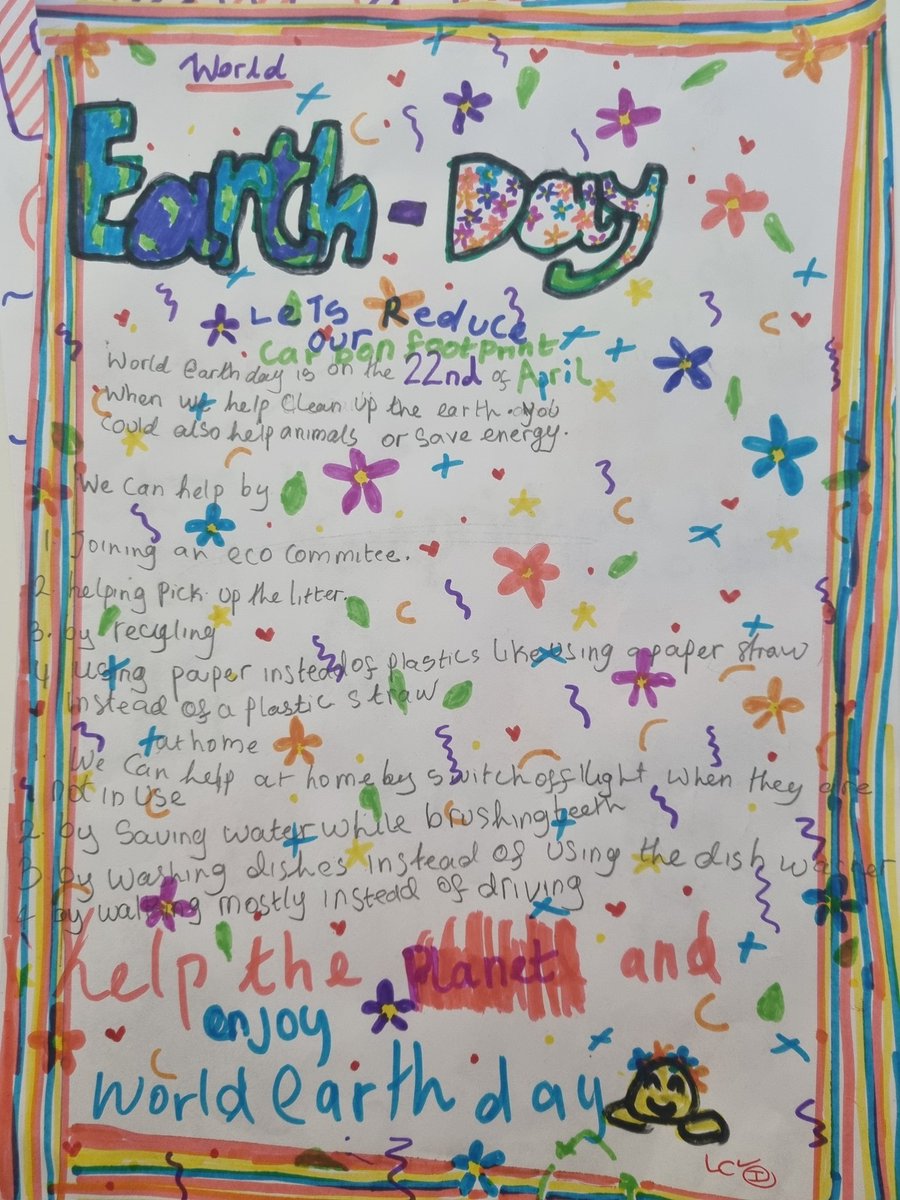 World
Earth - Day
LeTs Reduce
our
carbon footprint
World earth day is on the 22nd of April
When we help clean up the earth. you
could also help animals or save energy.
We can help by
1. Joining an eco commitee.
2. helping pick up the litter.
3. by recycling
4 using paper instead of plastics like using a paper straw
instead of a plastic straw
at home
1. We can help at home by switch off light when they are
not in use
2. by saving water while brushing teeth
3 by washing dishes instead of using the dish washer
4 by walking mostly instead of driving
help the planet and
enjoy
World earth day